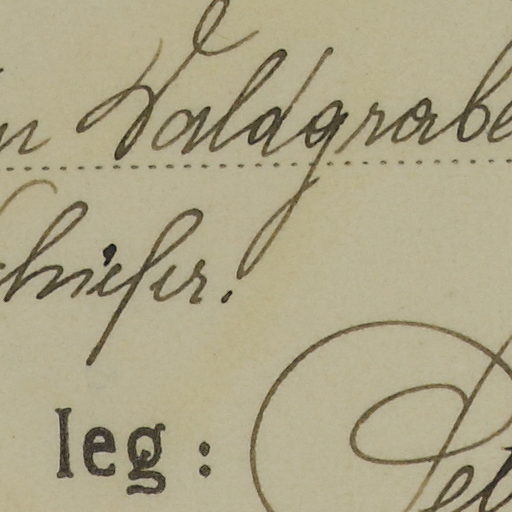 Waldgrabe
chiefer.
leg :